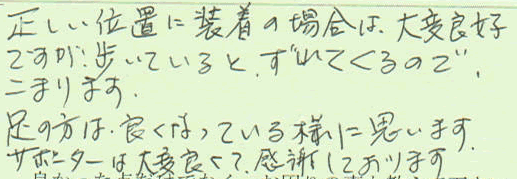 正しい位置に装着の場合は、大変良好
ですが、歩いていると、ずれてくるので、
こまります。
足の方は、良くなっている様に思います。
サポーターは大変良くて、感謝しております